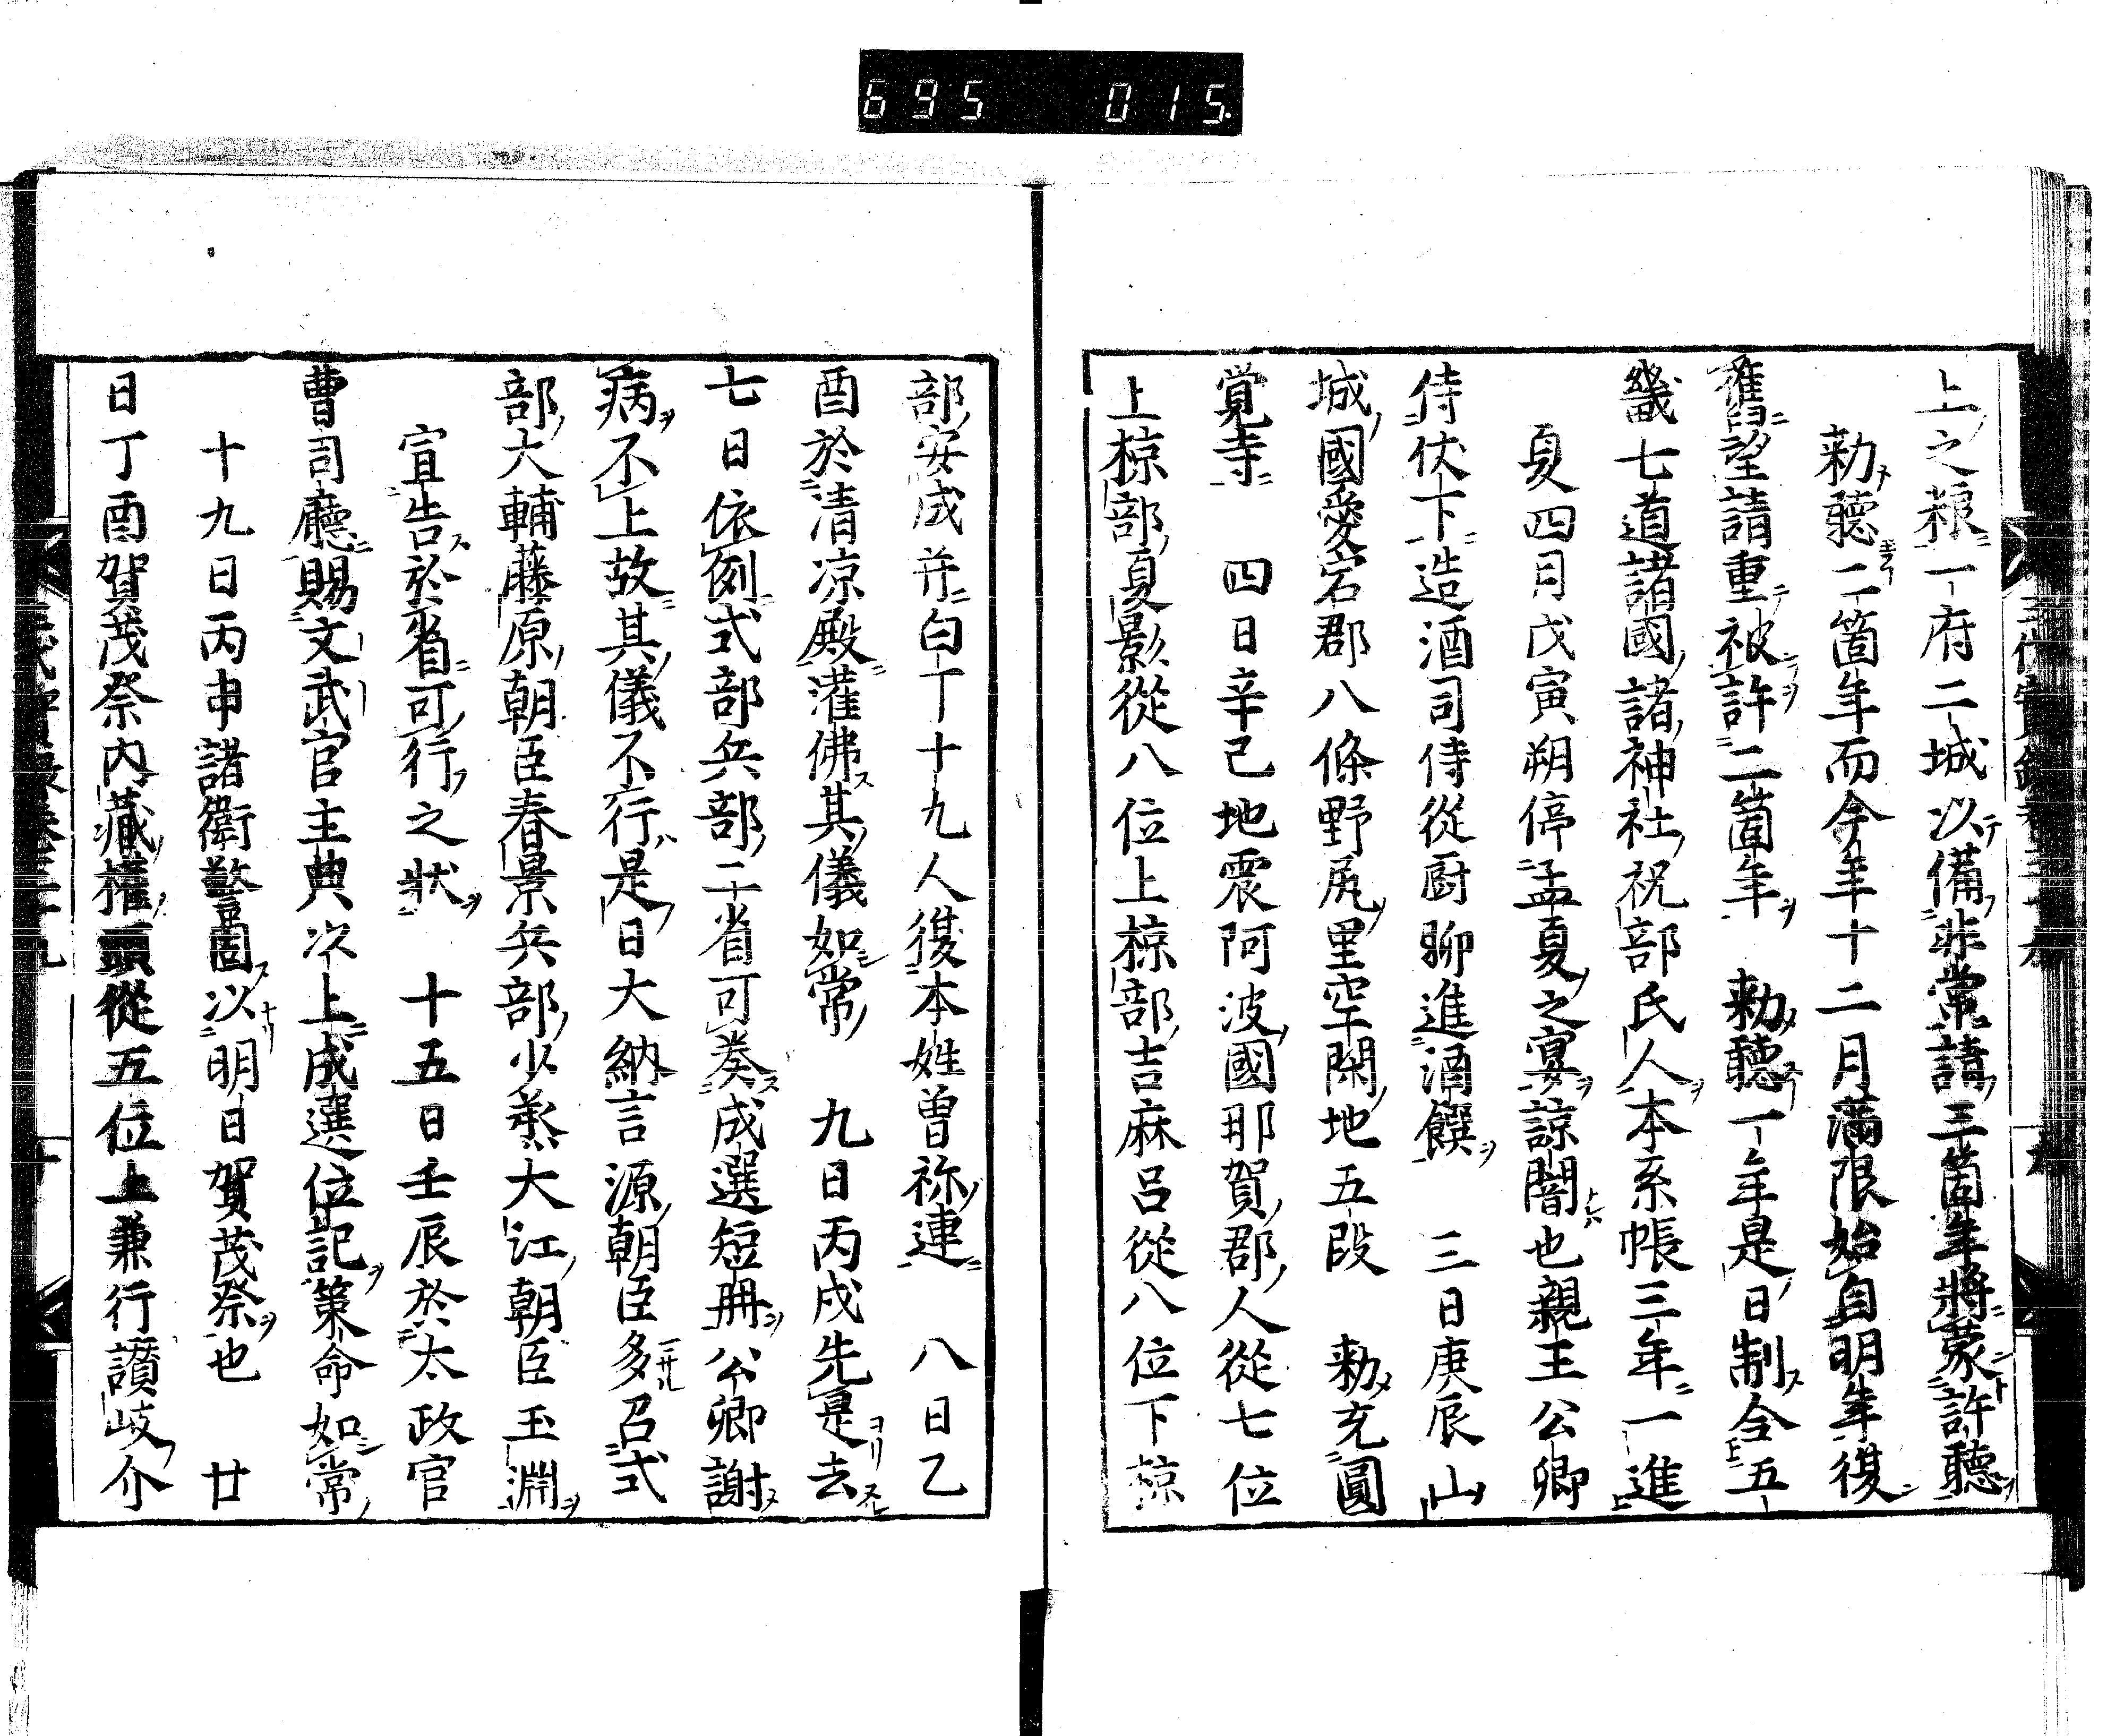 695 015
上之粮一府二城以備非常請三箇年將蒙許聽
勅聽二箇年而今年十二月滿限始自明年復
舊望請重被許二箇年 勅聽一年是日制令五
畿七道諸國諸神社祝部氏人本系帳三年一進
夏四月戊寅朔停孟夏之宴諒闇也親王公卿
侍伏下造酒司侍從厨聊進酒饌 三日庚辰山
城國愛宕郡八條野尻里空閑地五段 勅充圓
覚寺 四日辛已地震阿波國那賀郡人從七位
上椋部夏影從八位上椋部吉麻呂從八位下椋
部安成并白丁十九人復本姓曽祢連 八日乙
酉於清凉殿灌佛其儀如常 九日丙戌先是去
七日依例式部兵部二省可奏成選短冊公卿謝
病不上故其儀不行是日大納言源朝臣多召式
部大輔藤原朝臣春景兵部少丞大江朝臣玉淵
宣告於省可行之狀 十五日壬辰於太政官
曹司廳賜文武官主典次上成選位記策命如常
十九日丙申諸衛警固以明日賀茂祭也 廿
日丁酉賀茂祭内藏權頭從五位上兼行讃岐介